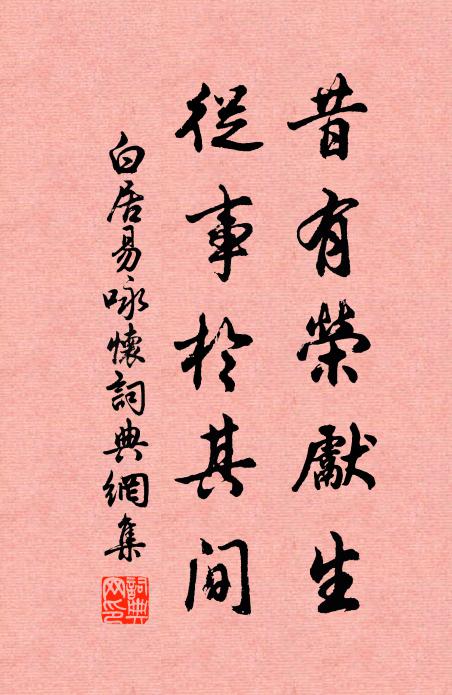 昔有榮獻生
從事於其间
白居易咏懷詞典網集
詞典網印